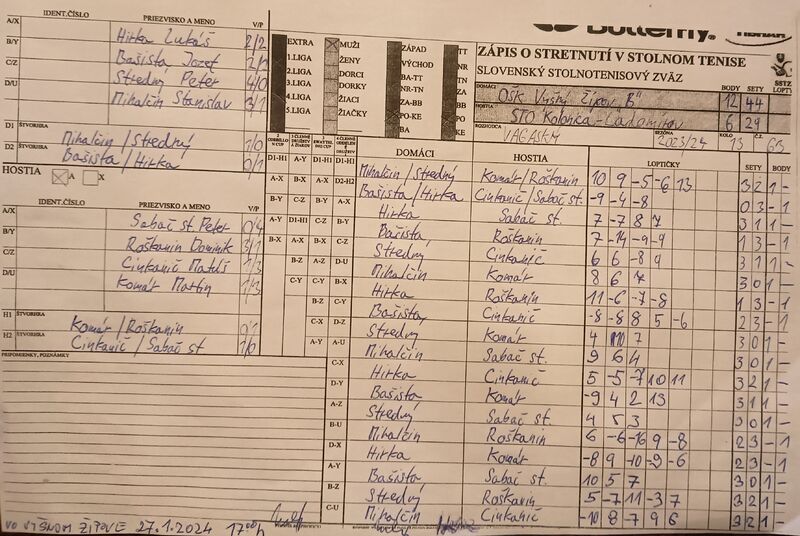 IDENT.ČÍSLO PRIEZVISKO A MENO V/P
A/X Hirka Lukáš 2/2
B/Y Bašista Jozef
C/Z Stredný Peter 4/0
D/U Mihalčin Stanislav 3/1
D1 ŠTVORHRA Mihalčin/Stredný 1/0
D2 ŠTVORHRA Bašista/Hirka 0/1
HOSTIA A X
IDENT.ČÍSLO PRIEZVISKO A MENO V/P
A/X Sabač st. Peter 0/4
B/Y Roškanin Dominik 3/1
C/Z Cinkanič Matúš 1/3
D/U Komár Martin 1/3
H1 ŠTVORHRA Komár/Roškanin 0/1
H2 ŠTVORHRA Cinkanič/Sabač st. 1/0
PRIPOMIENKY, POZNÁMKY
VO VYŠNOM ŽIPOVE 27.1.2024 17:00 h
EXTRA MUŽI ZÁPAD TT
1.LIGA ŽENY VÝCHOD NR
2.LIGA DORCI BA-TT TN
3.LIGA DORKY NR-TN ZA
4.LIGA ŽIACI ZA-BB BB
5.LIGA ŽIAČKY PO-KE PO
BA KE
Butterfly
ZÁPIS O STRETNUTÍ V STOLNOM TENISE
SLOVENSKÝ STOLNOTENISOVÝ ZVÄZ
SSTZ
DOMÁCI BODY SETY LOPTY
OŠK Vyšný Žipov "B" 12 44
HOSTIA STO Kolonica-Ladomirov 6 29
ROZHODCA VAGASKÝ SEZÓNA 2023/24 KOLO 13
DOMÁCI HOSTIA LOPTIČKY SETY BODY
D1-H1 Mihalčin/Stredný Komár/Roškanin 10 9 -5 -6 13 3 2 1 -
D2-H2 Bašista/Hirka Cinkanič/Sabač st. -9 -4 -8 0 3 - 1
A-X Hirka Sabač st. 7 -7 8 7 3 1 1 -
B-Y Bašista Roškanin 7 -14 -9 -9 1 3 - 1
C-Z Stredný Cinkanič 6 6 -8 9 3 1 1 -
D-U Mihalčin Komár 8 6 7 3 0 1 -
B-X Hirka Roškanin 11 -6 -7 -8 1 3 - 1
C-Y Bašista Cinkanič -8 -8 8 5 -6 2 3 - 1
D-Z Stredný Komár 4 10 7 3 0 1 -
A-U Mihalčin Sabač st. 9 6 4 3 0 1 -
C-X Hirka Cinkanič 5 -5 -7 10 11 3 2 1 -
D-Y Bašista Komár -9 4 2 13 3 1 1 -
A-Z Stredný Sabač st. 4 5 3 3 0 1 -
B-U Mihalčin Roškanin 6 -6 -16 9 -8 2 3 - 1
D-X Hirka Komár -8 9 -10 9 -6 2 3 - 1
A-Y Bašista Sabač st. 10 5 7 3 0 1 -
B-Z Stredný Roškanin 5 -7 11 -3 7 3 2 1 -
C-U Mihalčin Cinkanič -10 8 -7 9 6 3 2 1 -